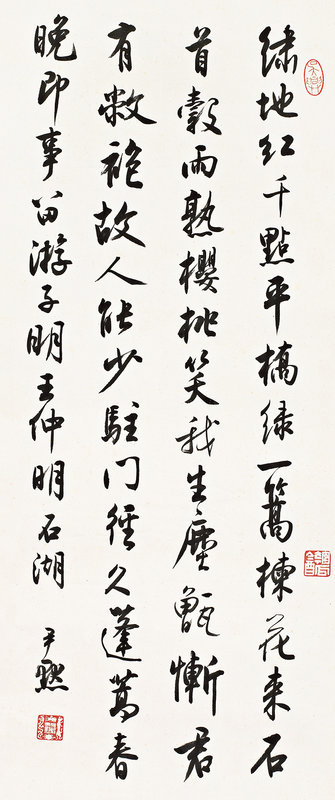 繡地紅千點平橋綠一篙楝花来石
首穀雨熟櫻桃笑我生塵甑慚君
有敝袍故人能少駐門徑久蓬蒿春
晚即事留游子明王仲明石湖 尹默